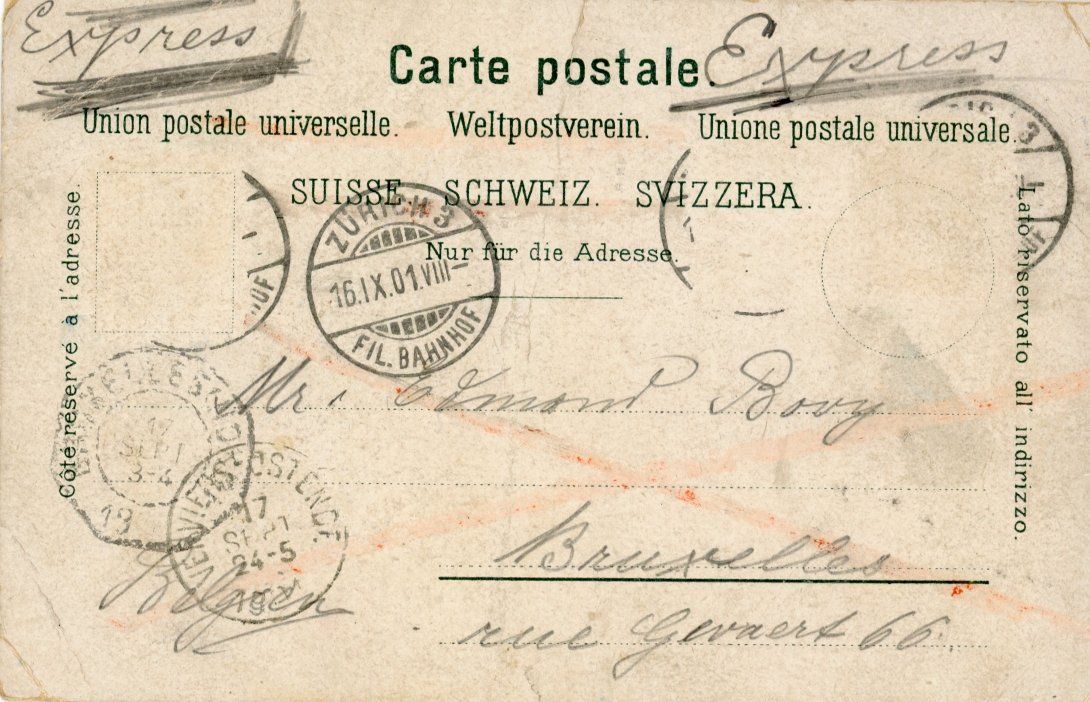 Express
Express
Carte postale.
Union postale universelle. Weltpostverein. Unione postale universale.
SUISSE. SCHWEIZ. SVIZZERA.
Nur für die Adresse.
Côté réservé à l'adresse.
Lato riservato all' indirizzo.
ZÜRICH 3
16.IX.01.VIII–
FIL. BAHNHOF
3
Mr. Edmond Bovy
SEPT
3-4
OSTENDE
17
SEPT
4-5
Bruxelles
Belgien
rue Gevaert 66.